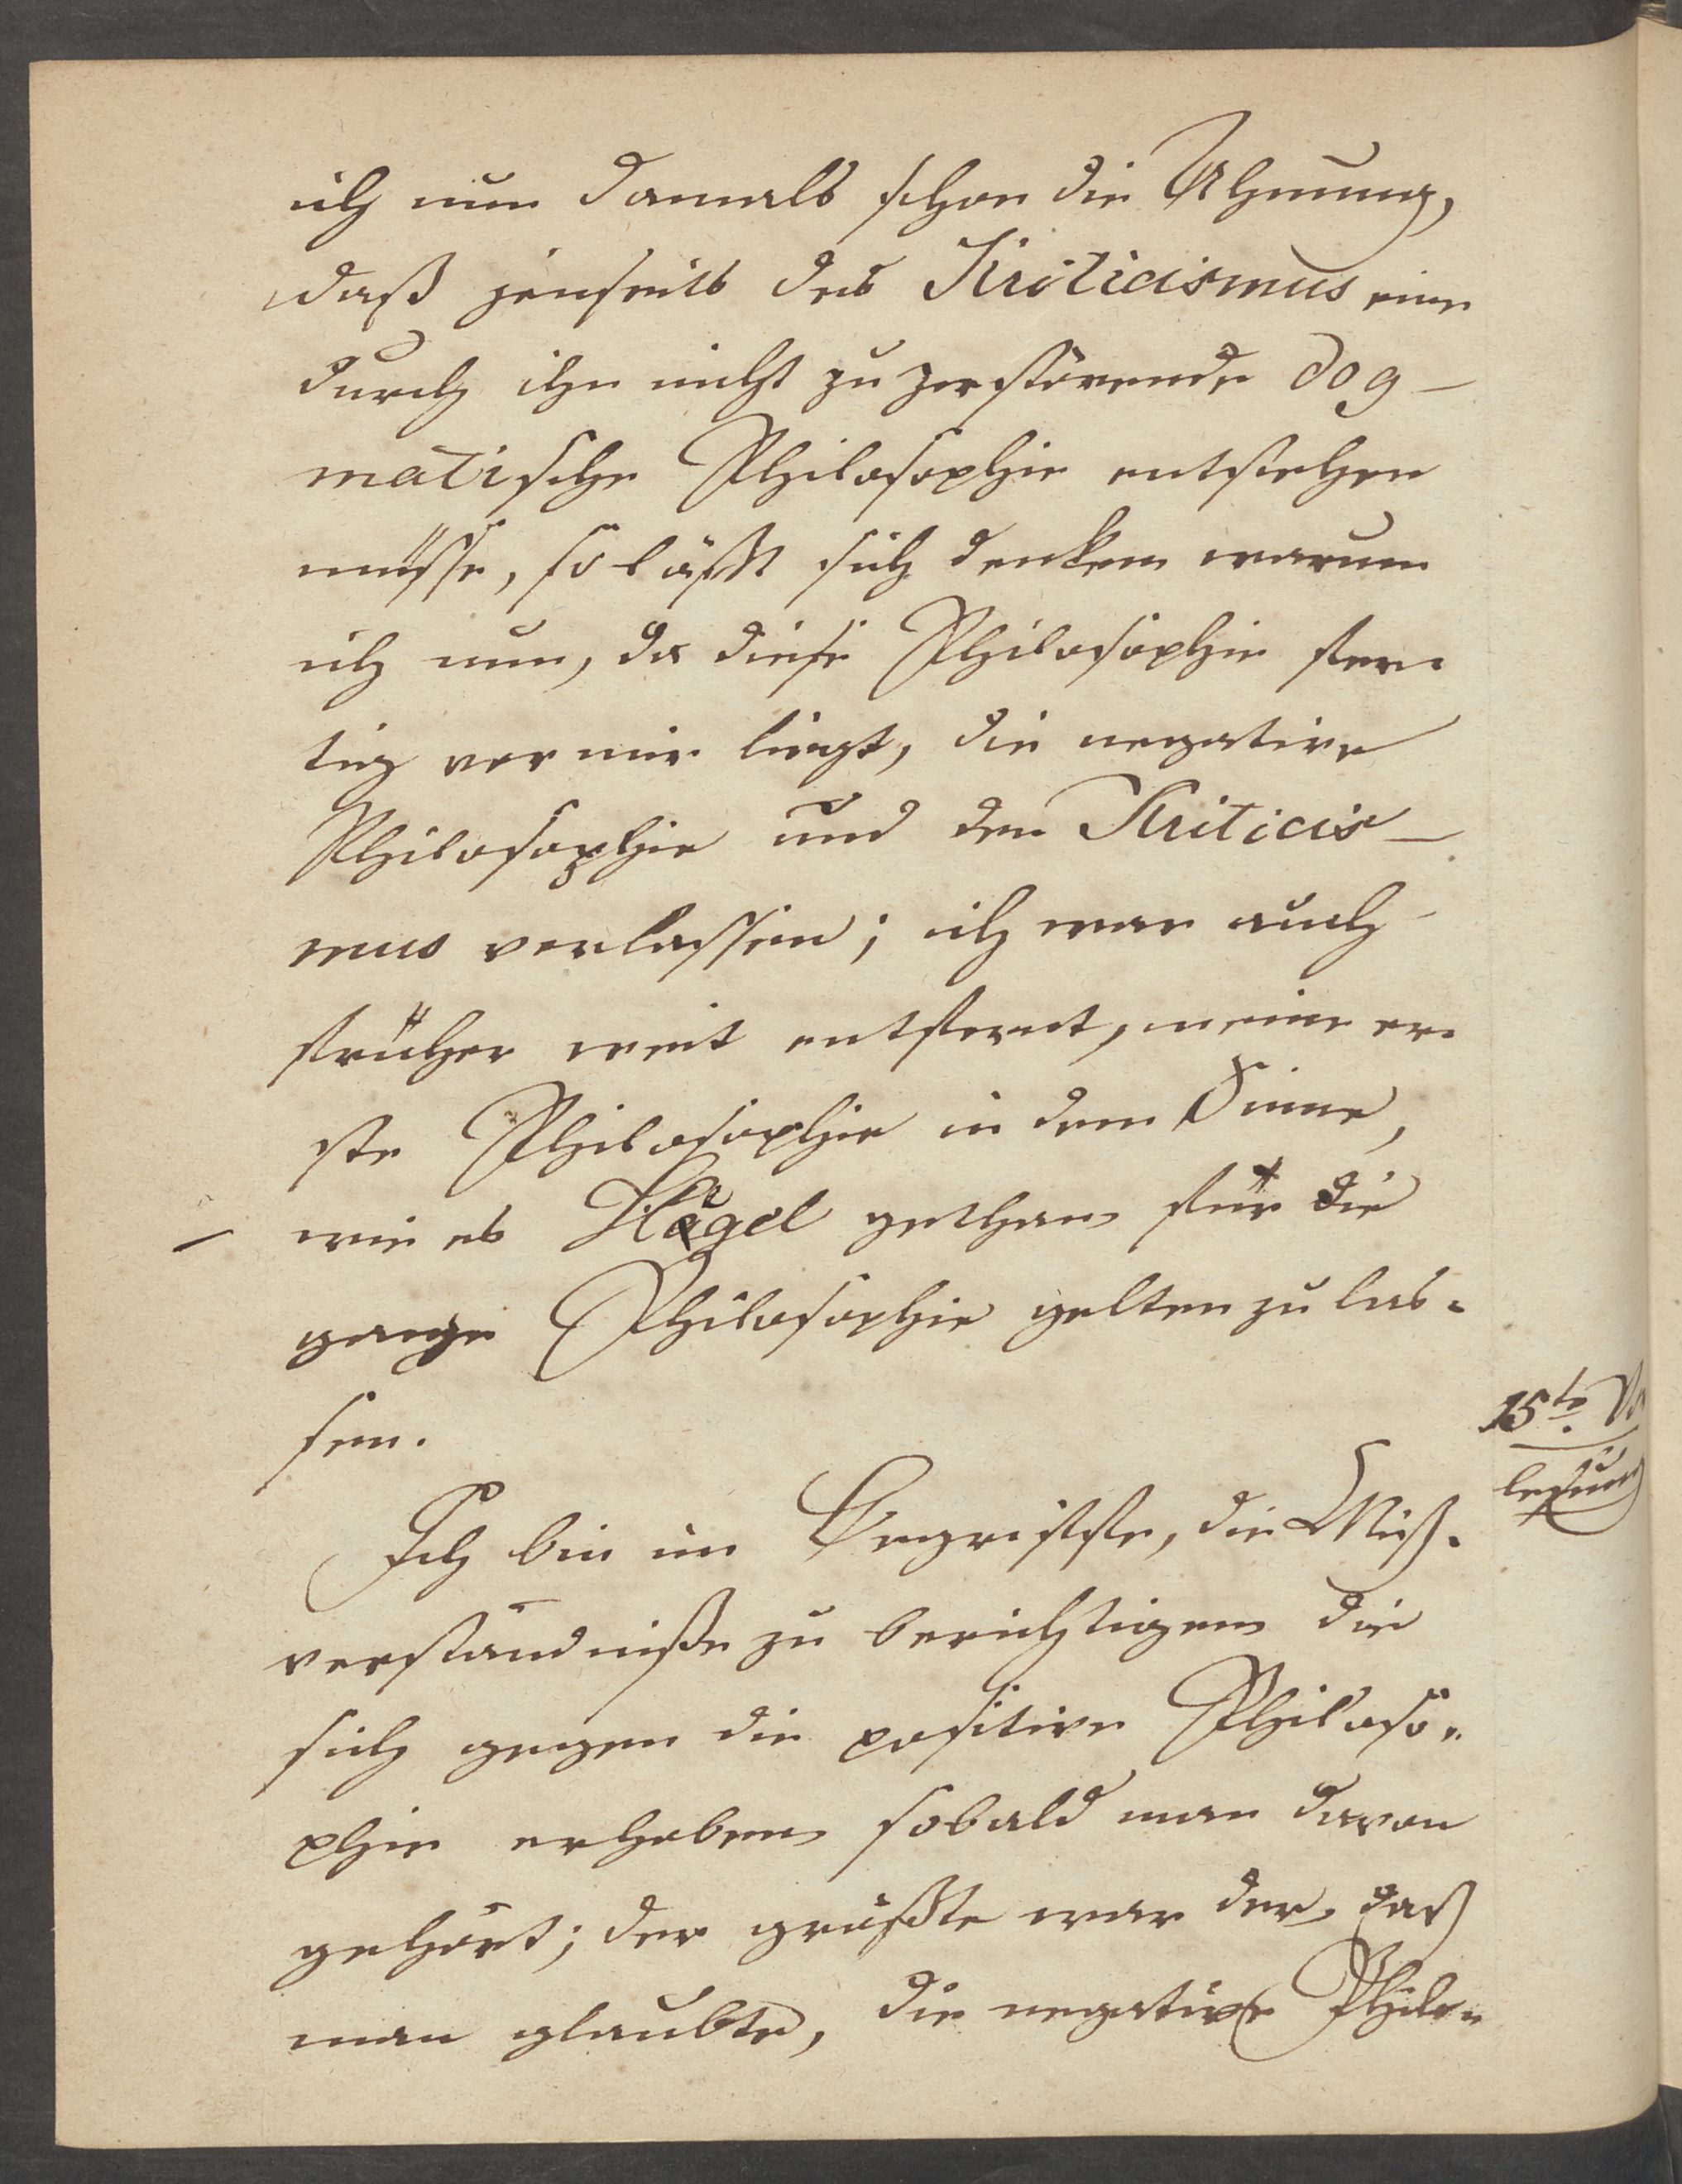 ich nun damals schon die Ahnung,
daß jenseits des Kriticismus eine
durch ihn nicht zu zerstörende dog-
matische Philosophie entstehen
müsse, so läßt sich denken warum
ich nun, da diese Philosophie fer-
tig vor mir liegt, die negative
Philosophie und den Kriticis-
mus verlassen; ich war auch
früher weit entfernt, meine er-
ste Philosophie in dem Sinne,
wie es Hegel gethan für die
ganze Philosophie gelten zu las-
sen.
15te Vor
lesung
Ich bin im Begriffe, die Miß-
verständniße zu berichtigen die
sich gegen die positive Philoso-
phie erhoben sobald man davon
gehört; der größte war der, daß
man glaubte, die negative Philo-